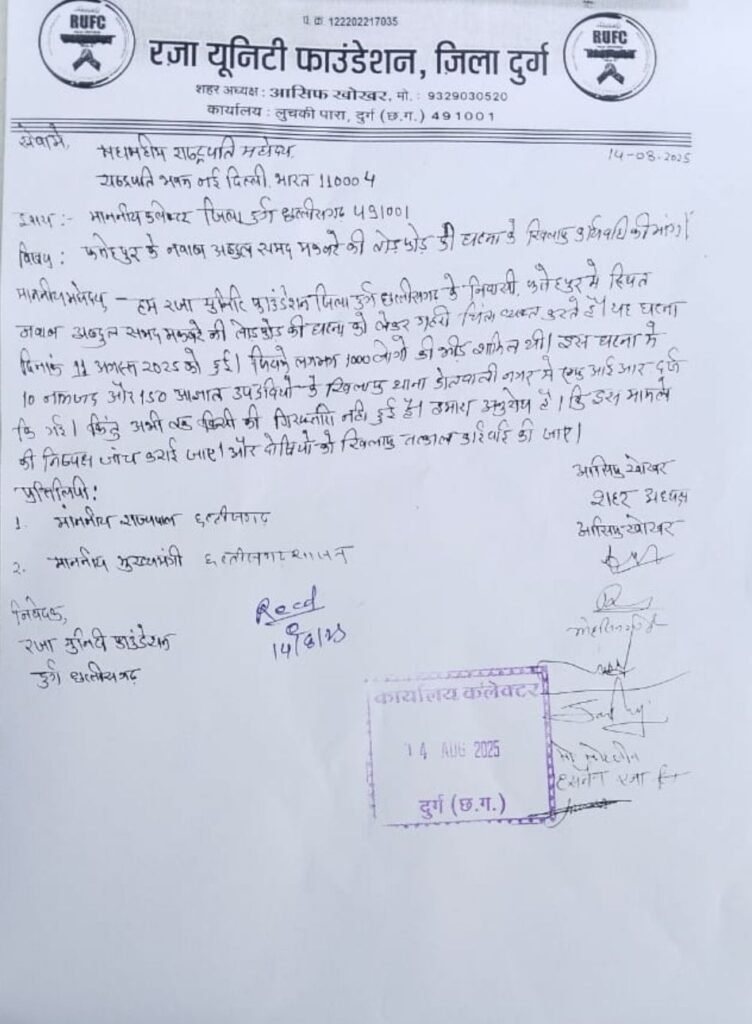 RUFC
पं. क्र. 122202217035
RUFC
रज़ा यूनिटी फाउंडेशन, ज़िला दुर्ग
शहर अध्यक्ष : आसिफ खोखर, मो. : 9329030520
कार्यालय : लुचकी पारा, दुर्ग (छ.ग.) 491001
सेवामे,
14-08-2025
महामहीम राष्ट्रपति महोदय
राष्ट्रपति भवन नई दिल्ली, भारत 110004
माननीय कलेक्टर जिला दुर्ग छत्तीसगढ 491001
विषय : फतेहपुर के नवाब अब्दुल समद मकबरे की तोड़फोड़ की घटना के खिलाफ की मांग।
माननीय महोदय - हम रजा युनिटि फाउंडेशन जिला दुर्ग छत्तीसगढ के निवासी, फतेहपुर मे स्थित
नवाब अब्दुल समद मकबरे की तोडफोड की घटना को लेकर गहरी चिंता व्यक्त करते है। यह घटना
दिनांक 11 अगस्त 2025 को हुई। जिसमे लगभग 1000 लोगो की भीड शामिल थी। इस घटना मे
10 नामजद और 150 अज्ञात उपद्रवियो के खिलाफ थाना कोतवाली नगर मे एफ आई आर दर्ज
कि गई। किंतु अभी तक किसी की गिरफ्तारी नही हुई है। हमारा अनुरोध है। कि इस मामले
की निष्पक्ष जांच कराई जाए। और दोषियो के खिलाफ तत्काल कार्रवाई की जाए।
आसिफ खोखर
प्रतिलिपी :
शहर अध्यक्ष
1. माननीय राज्यपाल छत्तीसगढ
आसिफ खोखर
2. माननीय मुख्यमंत्री छत्तीसगढ शासन
निवेदक,
रजा युनिटी फाउंडेशन
दुर्ग छत्तीसगढ़
Recd
14/8/25
कार्यालय कलेक्टर
14 AUG 2025
दुर्ग (छ.ग.)